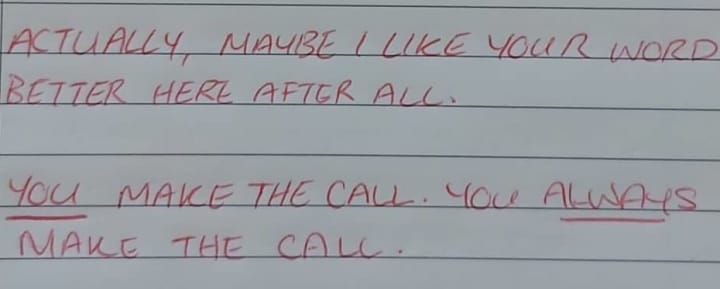 ACTUALLY, MAYBE I LIKE YOUR WORD
BETTER HERE AFTER ALL.
YOU MAKE THE CALL. YOU ALWAYS
MAKE THE CALL.